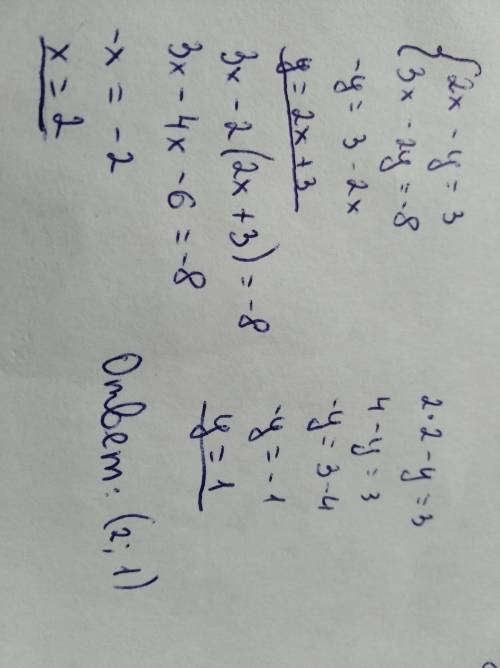 { 2x - y = 3
3x - 2y = -8
-y = 3 - 2x
y = 2x + 3
3x - 2(2x + 3) = -8
3x - 4x - 6 = -8
-x = -2
x = 2
2 · 2 - y = 3
4 - y = 3
-y = 3 - 4
-y = -1
y = 1
Ответ: (2; 1)